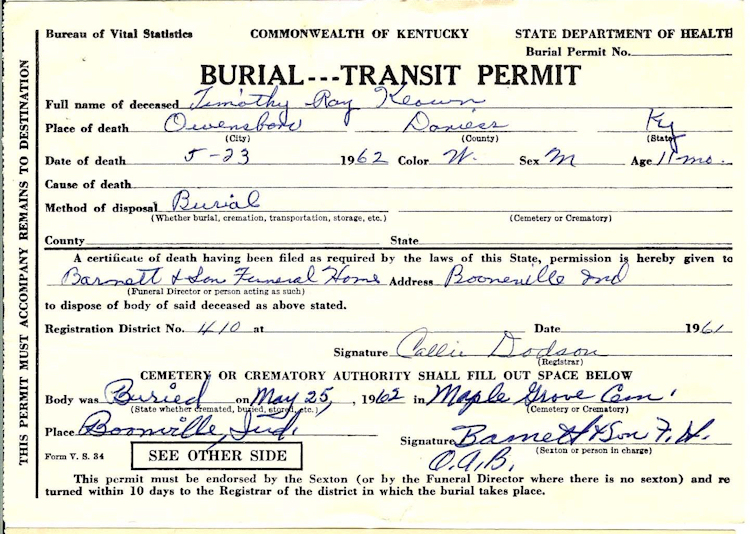 Bureau of Vital Statistics COMMONWEALTH OF KENTUCKY STATE DEPARTMENT OF HEALTH
Burial Permit No.
BURIAL---TRANSIT PERMIT
Full name of deceased Timothy Ray Keown
Place of death Owensboro Daviess Ky
(City) (County) (State)
Date of death 5-23 1962 Color W. Sex M Age 11 mo.
Cause of death
Method of disposal Burial
(Whether burial, cremation, transportation, storage, etc.) (Cemetery or Crematory)
County State
A certificate of death having been filed as required by the laws of this State, permission is hereby given to
Barnett & Son Funeral Home Address Booneville Ind
(Funeral Director or person acting as such)
to dispose of body of said deceased as above stated.
Registration District No. 410 at Date 1961
Signature Callie Dodson
(Registrar)
CEMETERY OR CREMATORY AUTHORITY SHALL FILL OUT SPACE BELOW
Body was Buried on May 25, , 1962 in Maple Grove Cem.
(State whether cremated, buried, stored, etc.) (Cemetery or Crematory)
Place Boonville, Ind. Signature Barnett & Son F. H.
(Sexton or person in charge)
O.A.B.
Form V. S. 34 SEE OTHER SIDE
This permit must be endorsed by the Sexton (or by the Funeral Director where there is no sexton) and re
turned within 10 days to the Registrar of the district in which the burial takes place.
THIS PERMIT MUST ACCOMPANY REMAINS TO DESTINATION